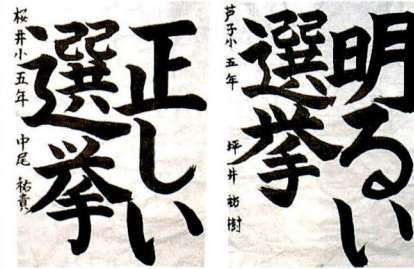 正しい
選挙
桜井小 五年 中尾 祐貴
明るい
選挙
芦子小 五年 坪井 祐樹